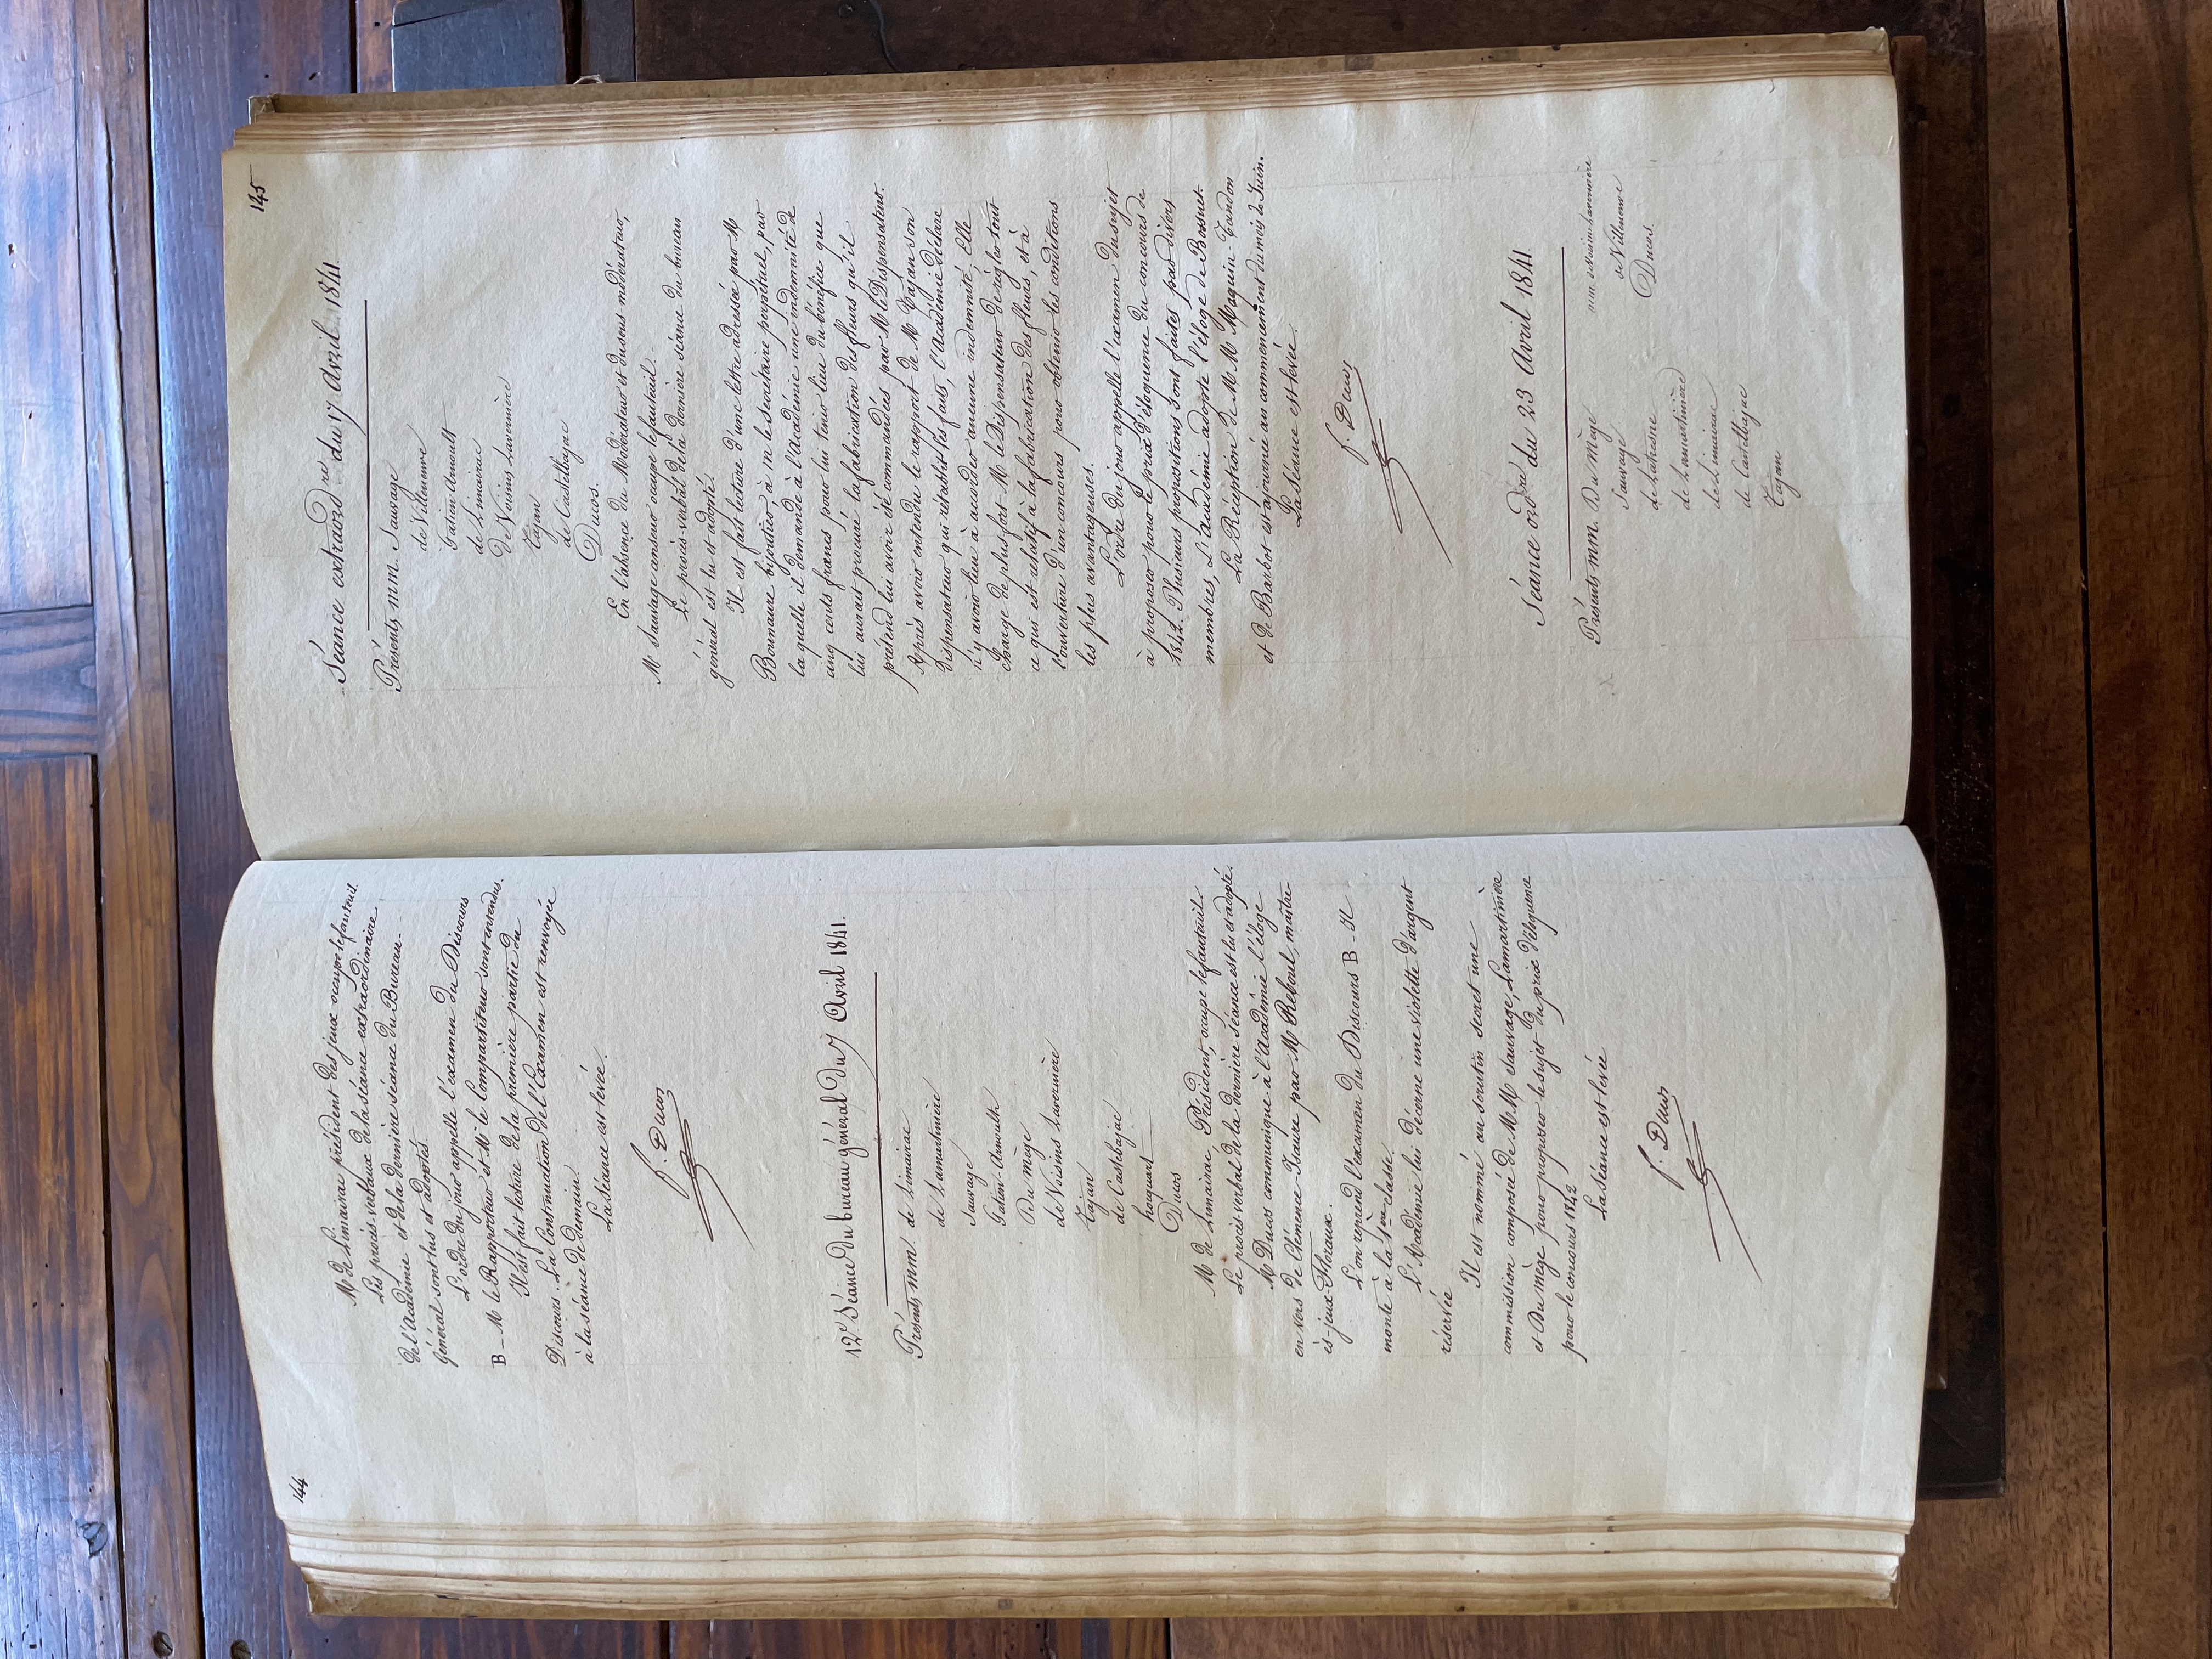 144
M de Limairac président des jeux occupe le fauteuil.
Les procès verbaux de la séance extraordinaire
de l'Académie et de la dernière séance du Bureau-
général sont lus et adoptés.
L'ordre du jour appelle l'examen du Discours
B - M le Rapporteur et M le Compartiteur sont entendus.
Il est fait lecture de la première partie du
Discours. La Continuation de l'Examen est renvoyée
à la séance de demain.
La séance est levée.
f. Ducos
12e Séance du bureau général du 7 Avril 1841.
Présents mm. de Limairac
de Lamartinière
Sauvage
Gatien-Arnoulth
Du mège
de Voisins Lavernière
Tajan
de Castelbajac
hocquart
Ducos
M de Limairac, Président, occupe le fauteuil.
Le procès verbal de la dernière séance est lu et adopté.
M Ducos communique à l'Académie l'éloge
en vers de Clémence-Isaure par M Reboul, maître
ès-jeux-Floraux.
L'on reprend l'examen du Discours B - Il
monte à la 1ère classe.
L'Académie lui décerne une violette d'argent
réservée
Il est nommé au scrutin secret une
commission composée de MM Sauvage, Lamartinière
et Du mège pour proposer le sujet du prix d'éloquence
pour le concours 1842
La séance est levée
f. Ducos
145
Séance extraord.re du 17 Avril 1841.
Présents mm. Sauvage
de Villeneuve
Gatien Arnoult
de Limairac
De Voisins Lavernière
Tajan
de Castelbajac
Ducos.
En l'absence du Modérateur et du sous modérateur,
M Sauvage censeur occupe le fauteuil.
Le procès verbal de la dernière séance du bureau
général est lu et adopté.
Il est fait lecture d'une lettre adressée par M
Bonnaure bijoutier, à m le secrétaire perpétuel, par
la quelle il demande à l'Académie une indemnité de
cinq cents francs pour lui tenir lieu du bénéfice que
lui aurait procuré la fabrication des fleurs qu'il
prétend lui avoir été commandées par M le Dispensateur.
Après avoir entendu le rapport de M Tajan son
Dispensateur qui rétablit les faits, l'Académie déclare
n'y avoir lieu à accorder aucune indemnité. Elle
charge de plus fort M le Dispensateur de régler tout
ce qui est relatif à la fabrication des fleurs, et à
l'ouverture d'un concours pour obtenir les conditions
les plus avantageuses.
L'ordre du jour appelle l'examen du sujet
à proposer pour le prix d'éloquence du concours de
1842. Plusieurs propositions sont faites par divers
membres, L'Académie adopte l'éloge de Bossuet.
La Réception de MM Moquin-Tandon
et de Barbot est ajournée au commencement du mois de Juin.
La Séance est levée
f. Ducos
Séance ord.re du 23 Avril 1841
Présents mm. Du Mège
Sauvage
de Lamartinière
de Limairac
de Castelbajac
Tajan
mm de Voisins Lavernière
de Villeneuve
Ducos.